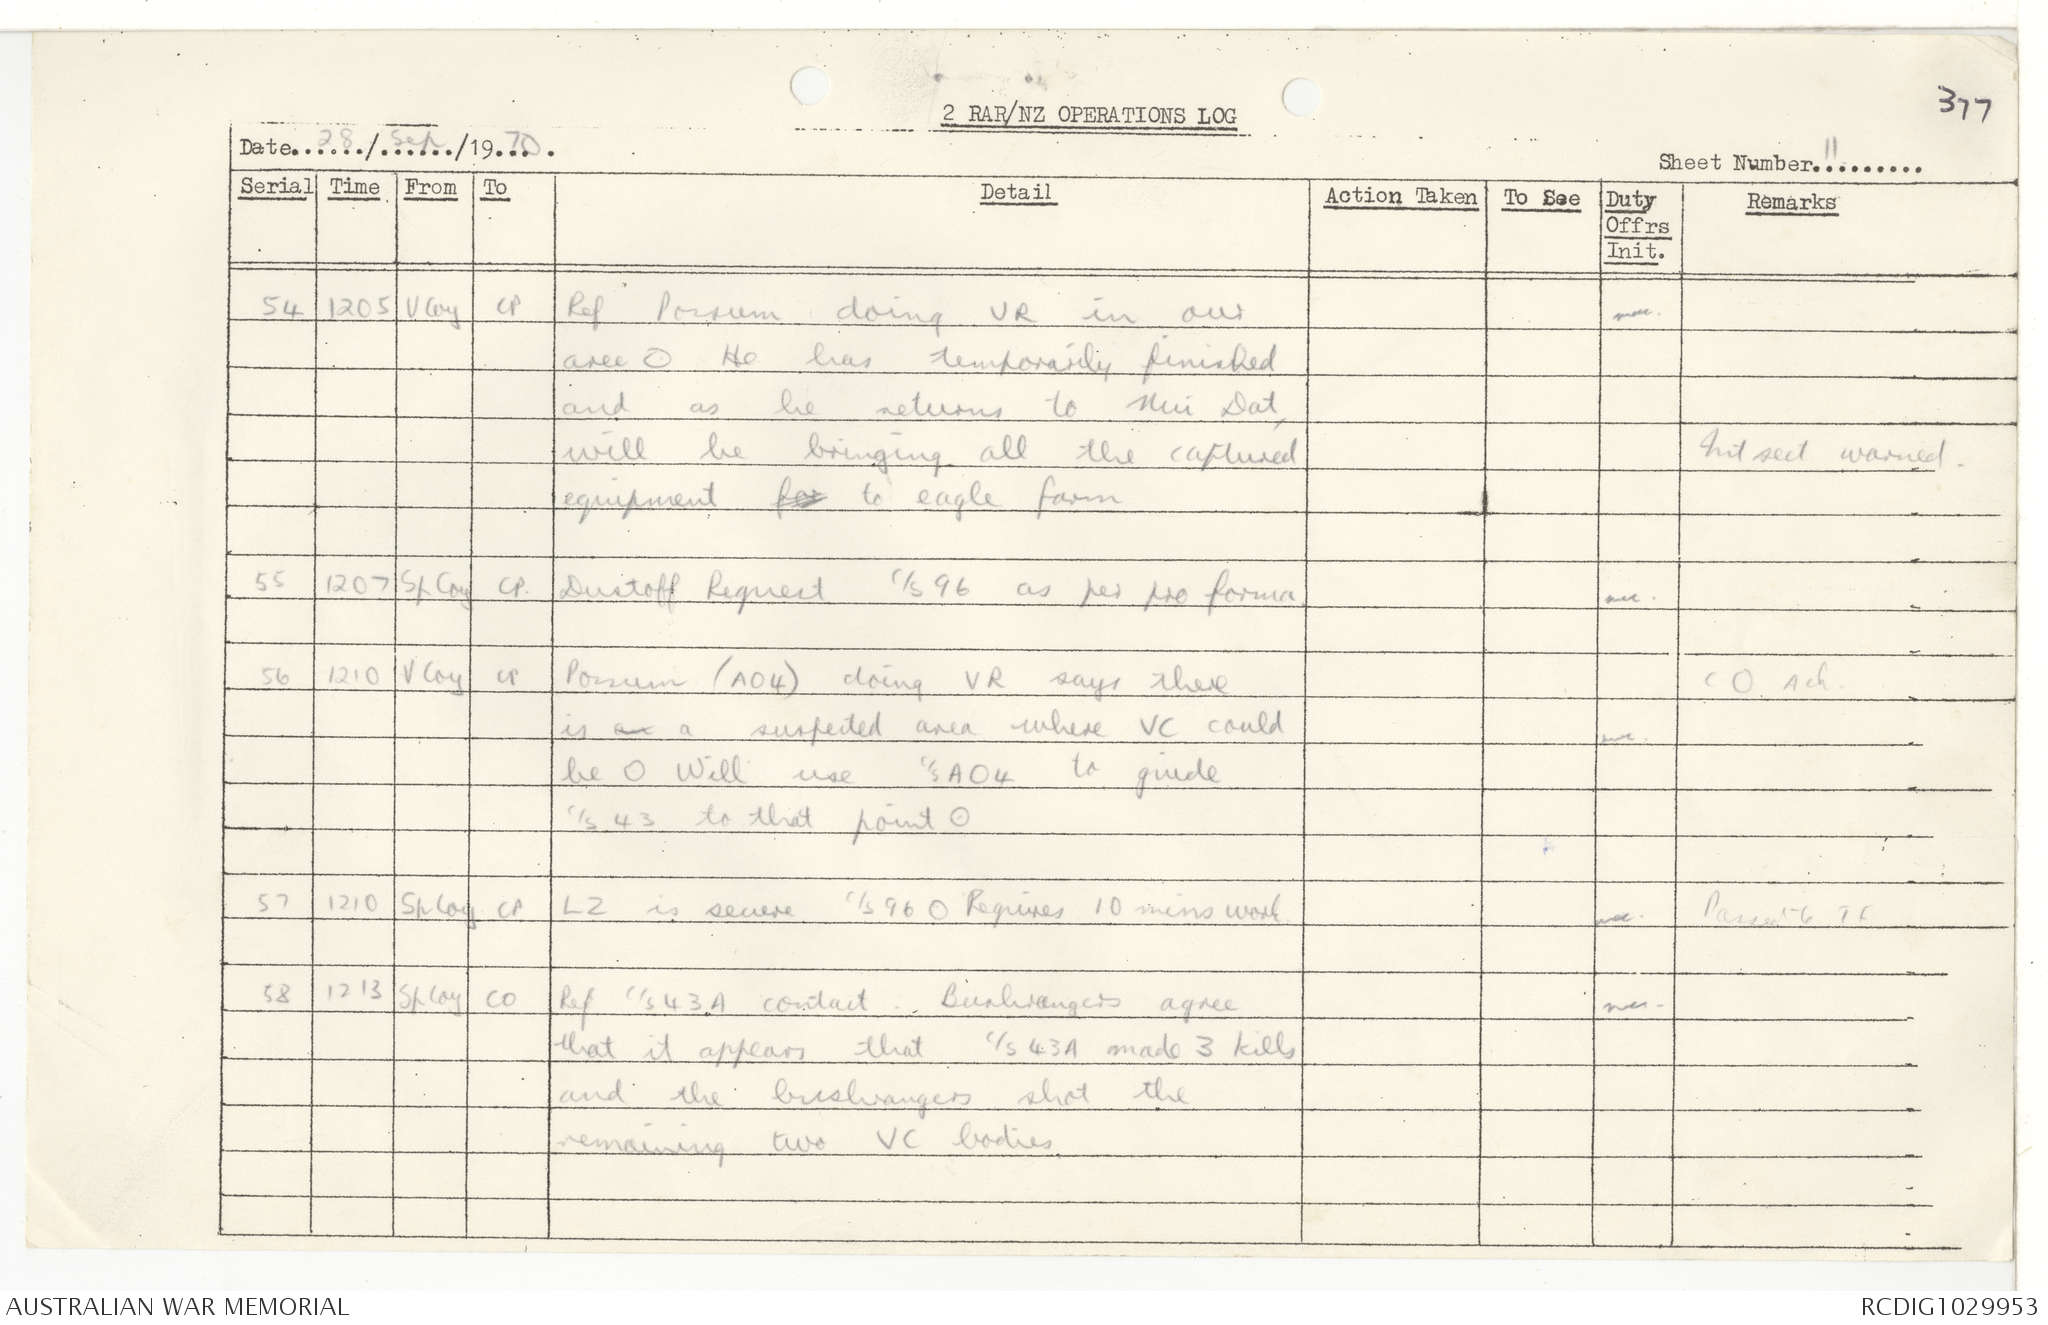 377
2 RAR/NZ OPERATIONS LOG
Date 28/Sep/1970.
Sheet Number 11
Serial Time From To Detail Action Taken To See Duty Offrs Init. Remarks
54 1205 V Coy CP Ref Possum doing VR in our
area O He has temporarily finished
and as he returns to Nui Dat,
will be bringing all the captured Int sect warned.
equipment for to eagle farm
55 1207 Sp Coy CP. Dustoff Request C/S 96 as per pro forma
56 1210 V Coy CP Possum (A04) doing VR says there CO Ack.
is an a suspected area where VC could
be O Will use C/S A04 to guide
C/S 43 to that point O
57 1210 Sp Coy CP LZ is secure C/S 96 O Requires 10 mins work. Passed to TF
58 1213 Sp Coy CO Ref C/S 43A contact. Bushrangers agree
that it appears that C/S 43A made 3 kills
and the bushrangers shot the
remaining two VC bodies
AUSTRALIAN WAR MEMORIAL
RCDIG1029953